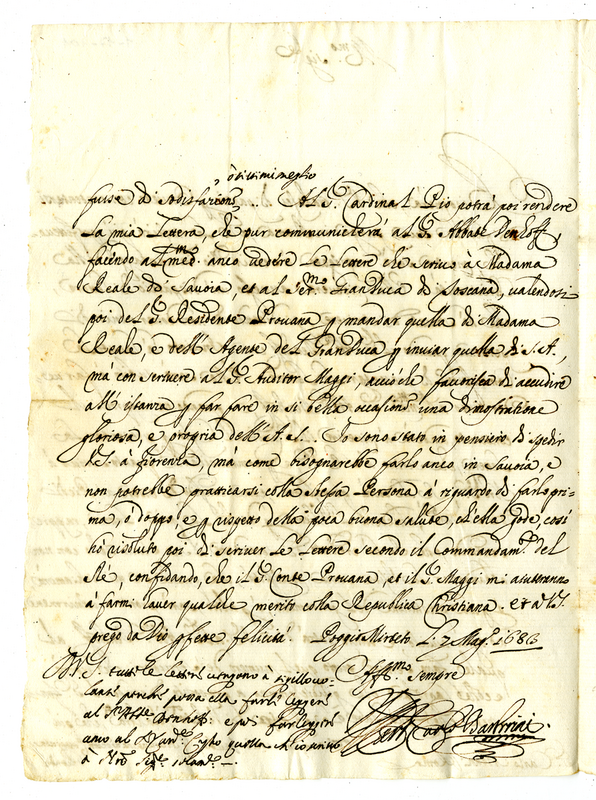 ò tutti meglio
fusse di sodisfazione .. Al S. Cardinal Pio potrà poi rendere
la mia lettera, che pur communicherà al S. Abbate
facendo al med.mo anco vedere le lettere che scrivo à Madama
Reale di Savoia, et al Ser.mo Gran Duca di Toscana, valendosi
poi del S. Residente Provana p mandar quella di Madama
Reale, e dell' Agente del Gran Duca p inviar quella di S. A.,
mà con scrivere al S. Auditor Maggi, acciò che favorisca di accudire
all' istanza p far fare in si bella occasione una dimostratione
gloriosa, e propria dell' A. S. . Io sono stato in pensiero di spedir
V.S. à Fiorenza, mà come bisognarebbe farlo anco in Savoia, e
non potrebbe pratticarsi colla stessa Persona à riguardo di farlo pri=
ma, ò doppo, e p rispetto della poca buona salute, ch'ella gode, così
hò risoluto poi di scriver le lettere secondo il Commandam.to del
Rè, confidando, che il S. Conte Provana, et il S. Maggi m' aiutaranno
à farmi haver qualche merito colla Republica Christiana. et a V.S.
prego da Dio pfette felicità. Poggio Mirteto li 7 Mag.o 1683
Aff.mo sempre
V.S. tutte le lettere vengono à sigillo vo=
lante perche possa ella farli leggere
al e poi far leggere
anco al quella ch'io scrivo
à Nro Sig.re
Carlo Barberini